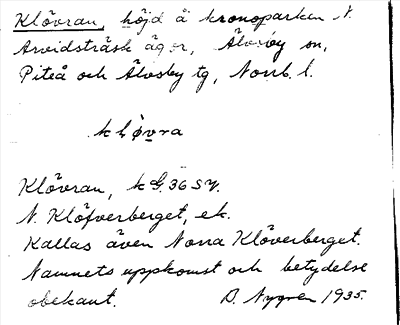 Klövran, höjd å kronoparken N.
Arvidsträsk ägor, Älvsby sn,
Piteå och Älvsby tg, Norrb. l.
kløvra
Klövran, k G. 36 SV.
N. Klöfverberget, ek.
Kallas även Norra Klöverberget.
Namnets uppkomst och betydelse
obekant. D. Nygren 1935.